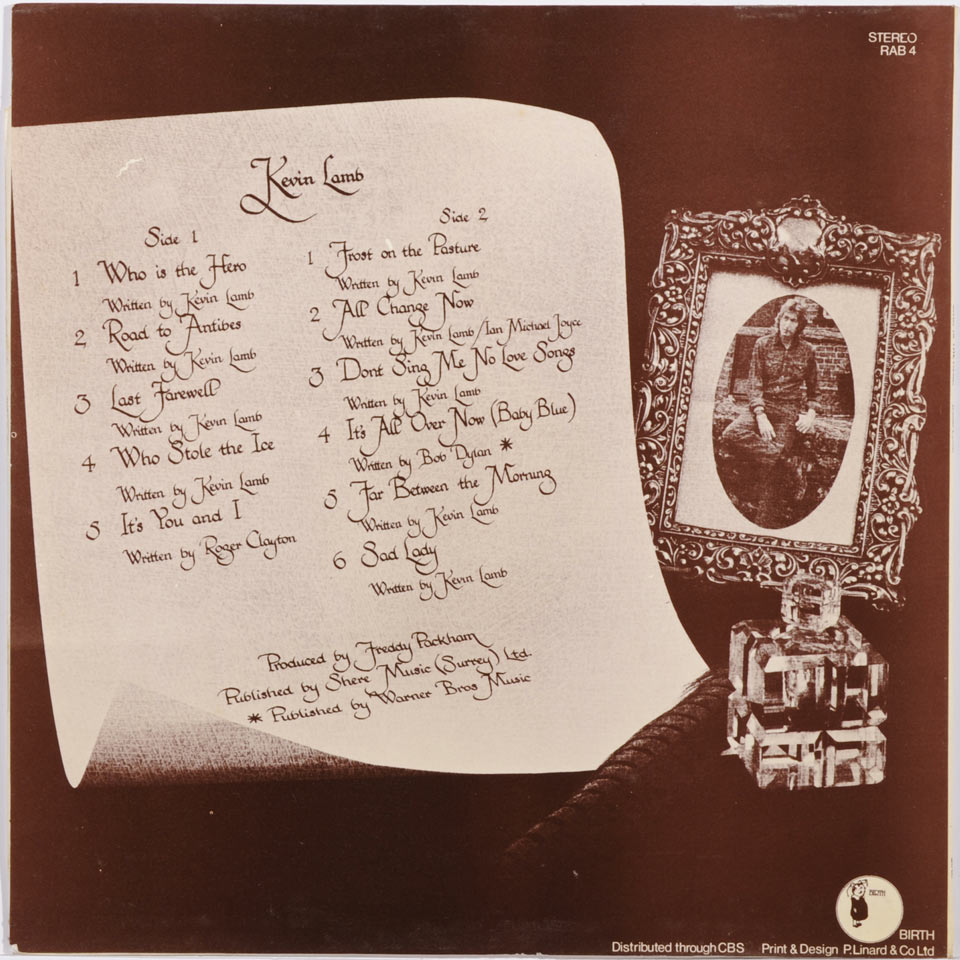 STEREO
RAB 4
Kevin Lamb
Side 1
1 Who is the Hero
Written by Kevin Lamb
2 Road to Antibes
Written by Kevin Lamb
3 Last Farewell
Written by Kevin Lamb
4 Who Stole the Ice
Written by Kevin Lamb
5 It's You and I
Written by Roger Clayton
Side 2
1 Frost on the Pasture
Written by Kevin Lamb
2 All Change Now
Written by Kevin Lamb/Ian Michael Joyce
3 Dont Sing Me No Love Songs
Written by Kevin Lamb
4 It's All Over Now (Baby Blue)
Written by Bob Dylan *
5 Far Between the Morning
Written by Kevin Lamb
6 Sad Lady
Written by Kevin Lamb
Produced by Freddy Packham
Published by Shere Music (Surrey) Ltd.
* Published by Warner Bros Music
BIRTH
BIRTH
Distributed through CBS Print & Design P.Linard & Co Ltd